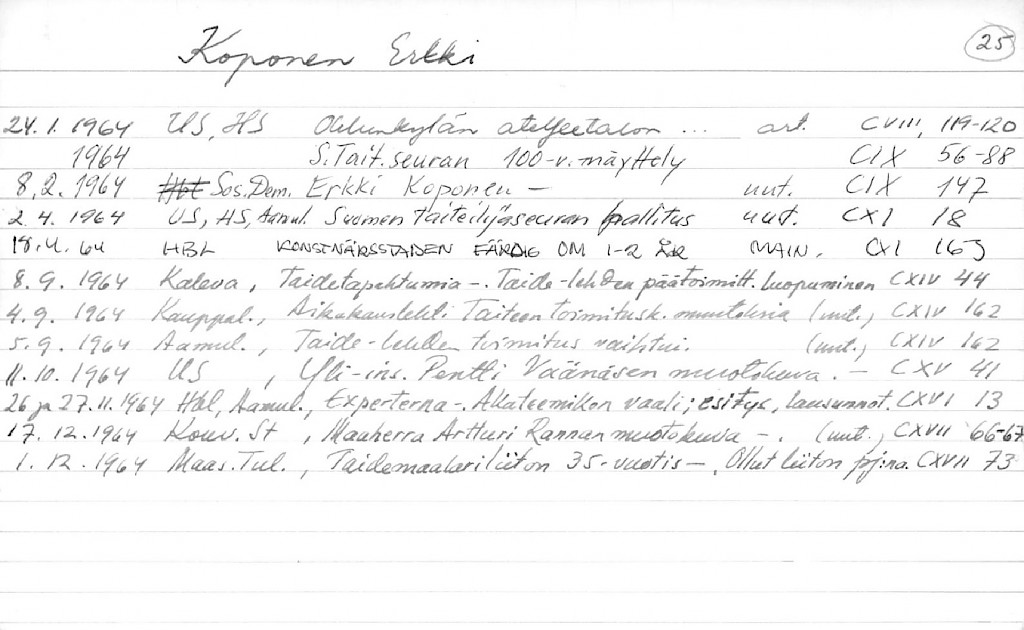 Koponen Erkki 25
24.1.1964 US, HS Oulunkylän ateljeetalon ... art. CVIII, 119-120
1964 S.Tait.seuran 100-v.näyttely CIX 56-88
8.2.1964 Hbl Sos.Dem. Erkki Koponen - uut. CIX 147
2.4.1964 US, HS, Aamul. Suomen taiteilijaseuran hallitus uut. CXI 18
18.4.64 HBL KONSTNÄRSSTADEN FÄRDIG OM 1-2 ÅR MAIN. CXI 165
8.9.1964 Kaleva, Taidetapahtumia -. Taide-lehden päätoimitt. luopuminen CXIV 44
4.9.1964 Kauppal., Aikakauslehti Taiteen toimitusk. muutoksia (uut.) CXIV 162
5.9.1964 Aamul., Taide-lehden toimitus vaihtui. (uut.) CXIV 162
11.10.1964 US, Yli-ins. Pentti Väänäsen muotokuva. - CXV 41
26 ja 27.11.1964 Hbl, Aamul., Experterna -. Akateemikon vaali; esitys, lausunnot. CXVI 13
17.12.1964 Kouv. St, Maaherra Artturi Rannan muotokuva -. (uut.) CXVII 66-67
1.12.1964 Maas.Tul., Taidemaalariliiton 35-vuotis -, Ollut liiton pj:na. CXVII 73